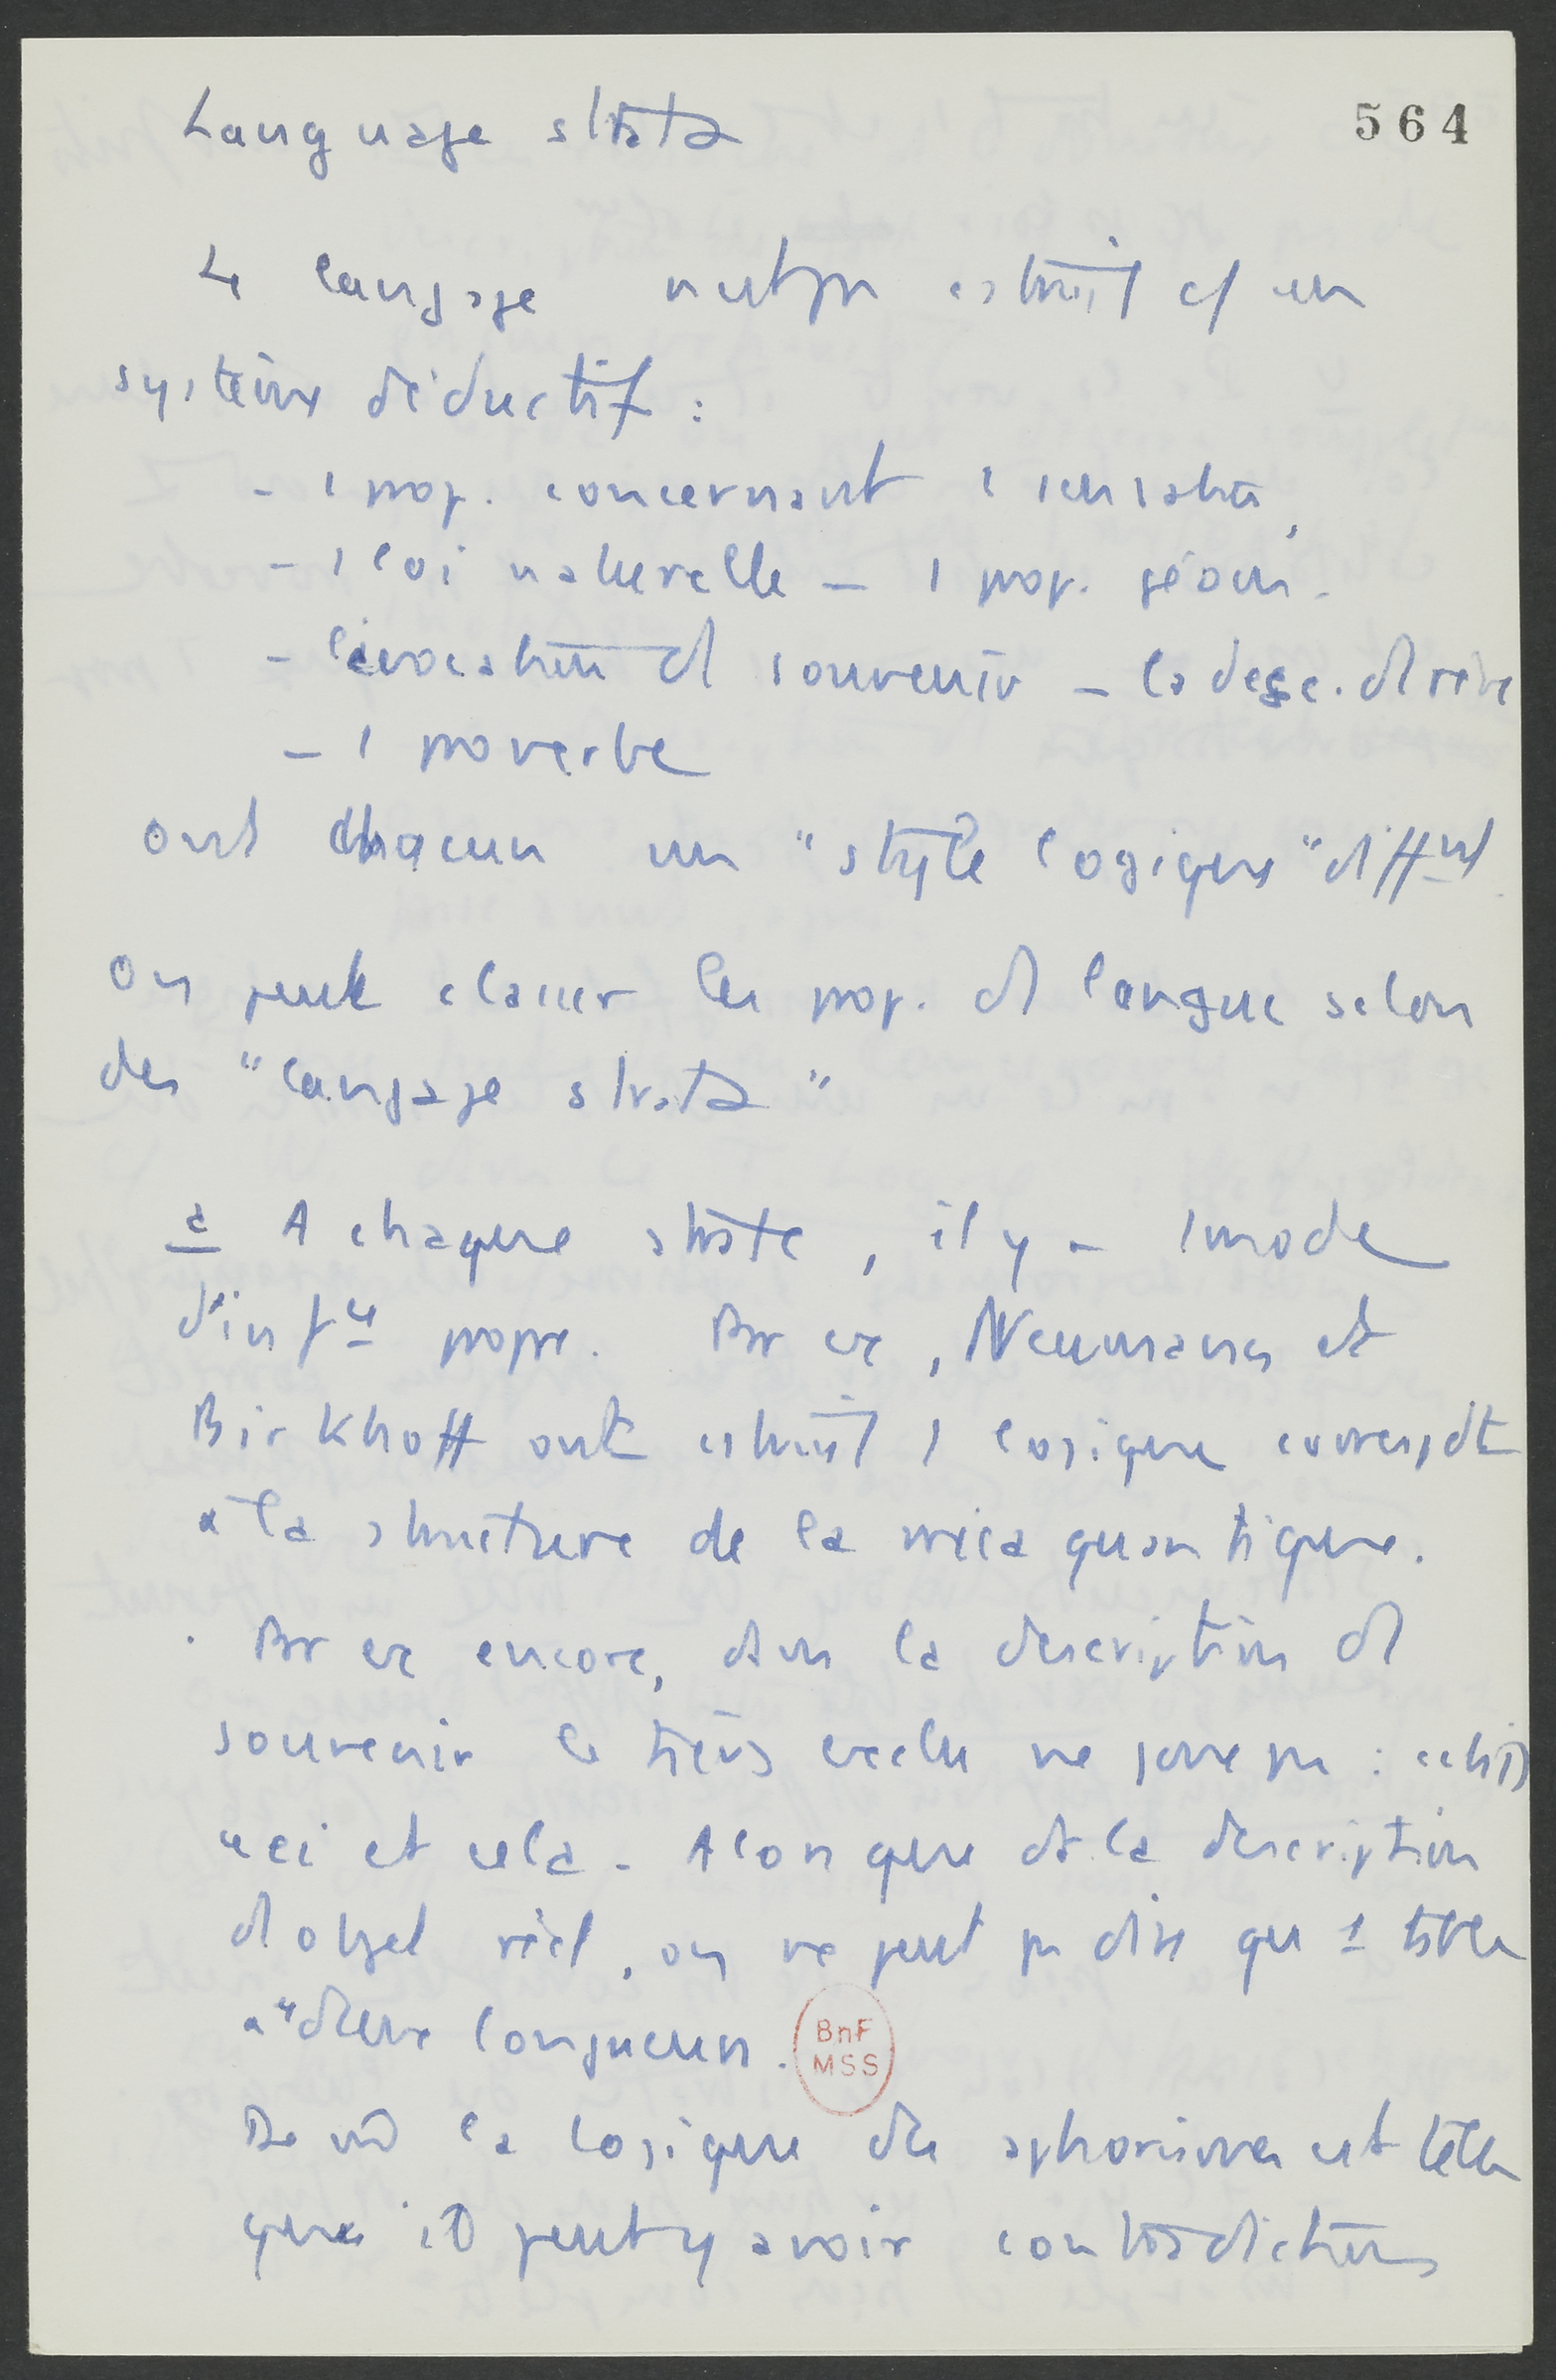 Language strata
564
Le langage n'est pas cstruit c/ un
système déductif :
- 1 prop. concernant 1 sensation,
- 1 loi naturelle - 1 prop. géom.
- l'évocation d souvenir - la desc. d rêve
- 1 proverbe
ont chacun un "style logique" diffent
On peut classer les prop. d langue selon
des "langage strata"
a A chaque strate, il y a 1 mode
propre. Par ex, Neumann et
Birkhoff ont cstruit 1 logique correspdt
à la structure de la méca quantique.
. Par ex encore, dans la description d
souvenir le tiers exclu ne joue pas :
ceci et cela. Alors que ds la description
d objet réel, on ne peut pas dire qu 1 table
a deux longueurs.
BnF
MSS
De m̂ la logique des aphorismes est telle
que il peut y avoir contradiction